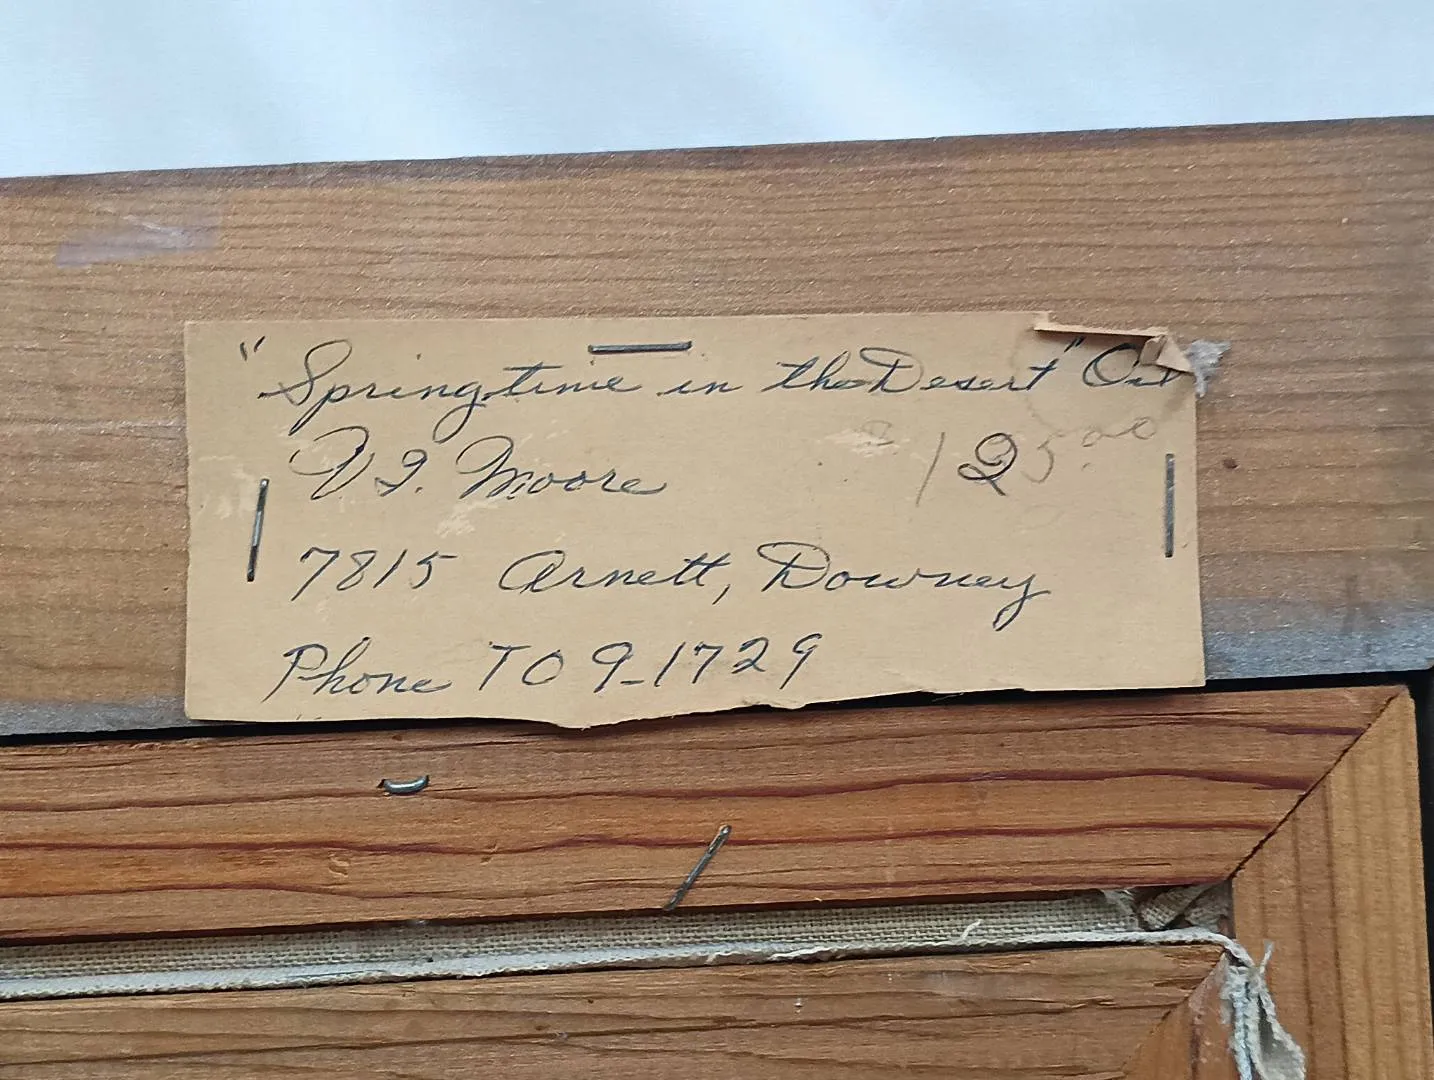 "Springtime in the Desert" Oil
V I. Moore $125.00
7815 Arnett, Downey
Phone TO 9-1729